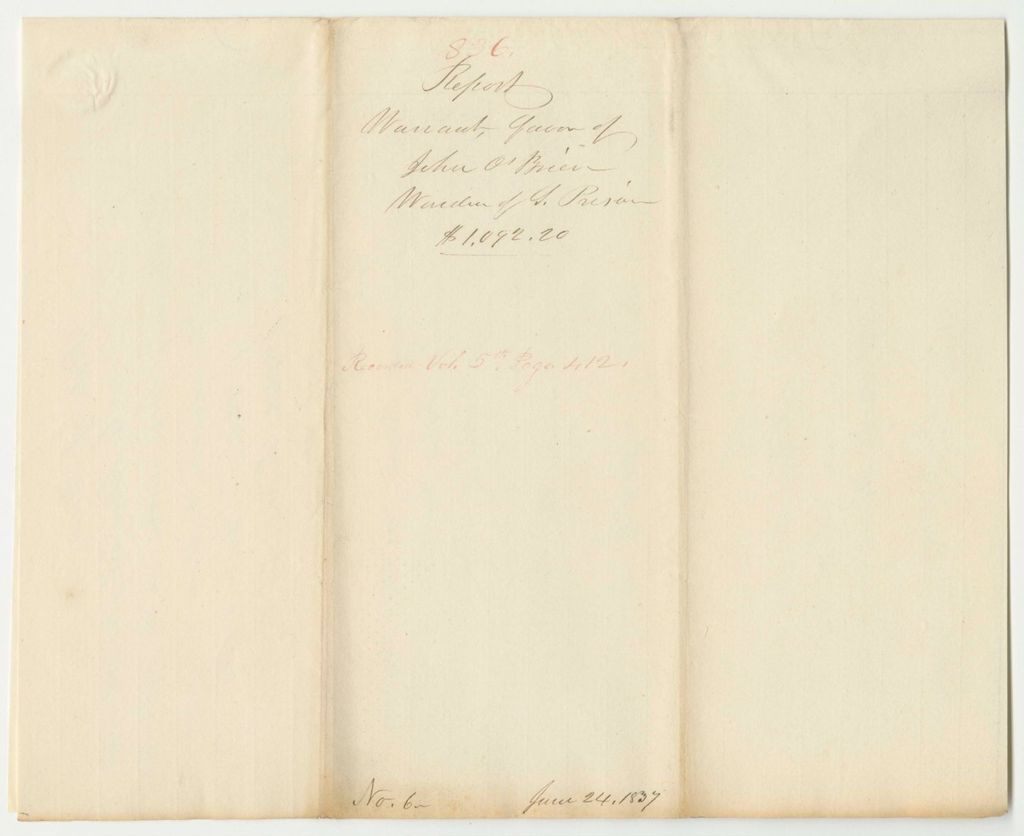 836.
Report
Warrant, favor of
John O'Brien
Warden of S. Prison
$1,092.20
Recorded Vol. 5th. Page 412.
No. 6
June 24, 1837